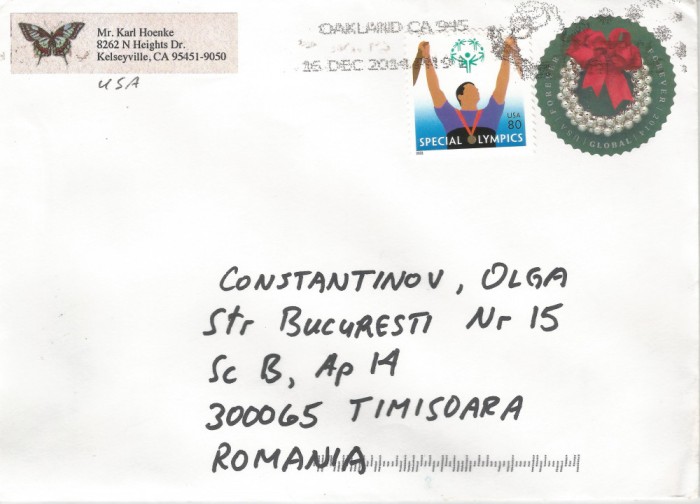 Mr. Karl Hoenke
8262 N Heights Dr.
Kelseyville, CA 95451-9050
USA
OAKLAND CA 945
16 DEC 2014
USA
80
SPECIAL OLYMPICS
FOREVER
FOREVER
GLOBAL
CONSTANTINOV, OLGA
Str BUCURESTI Nr 15
Sc B, Ap 14
300065 TIMISOARA
ROMANIA